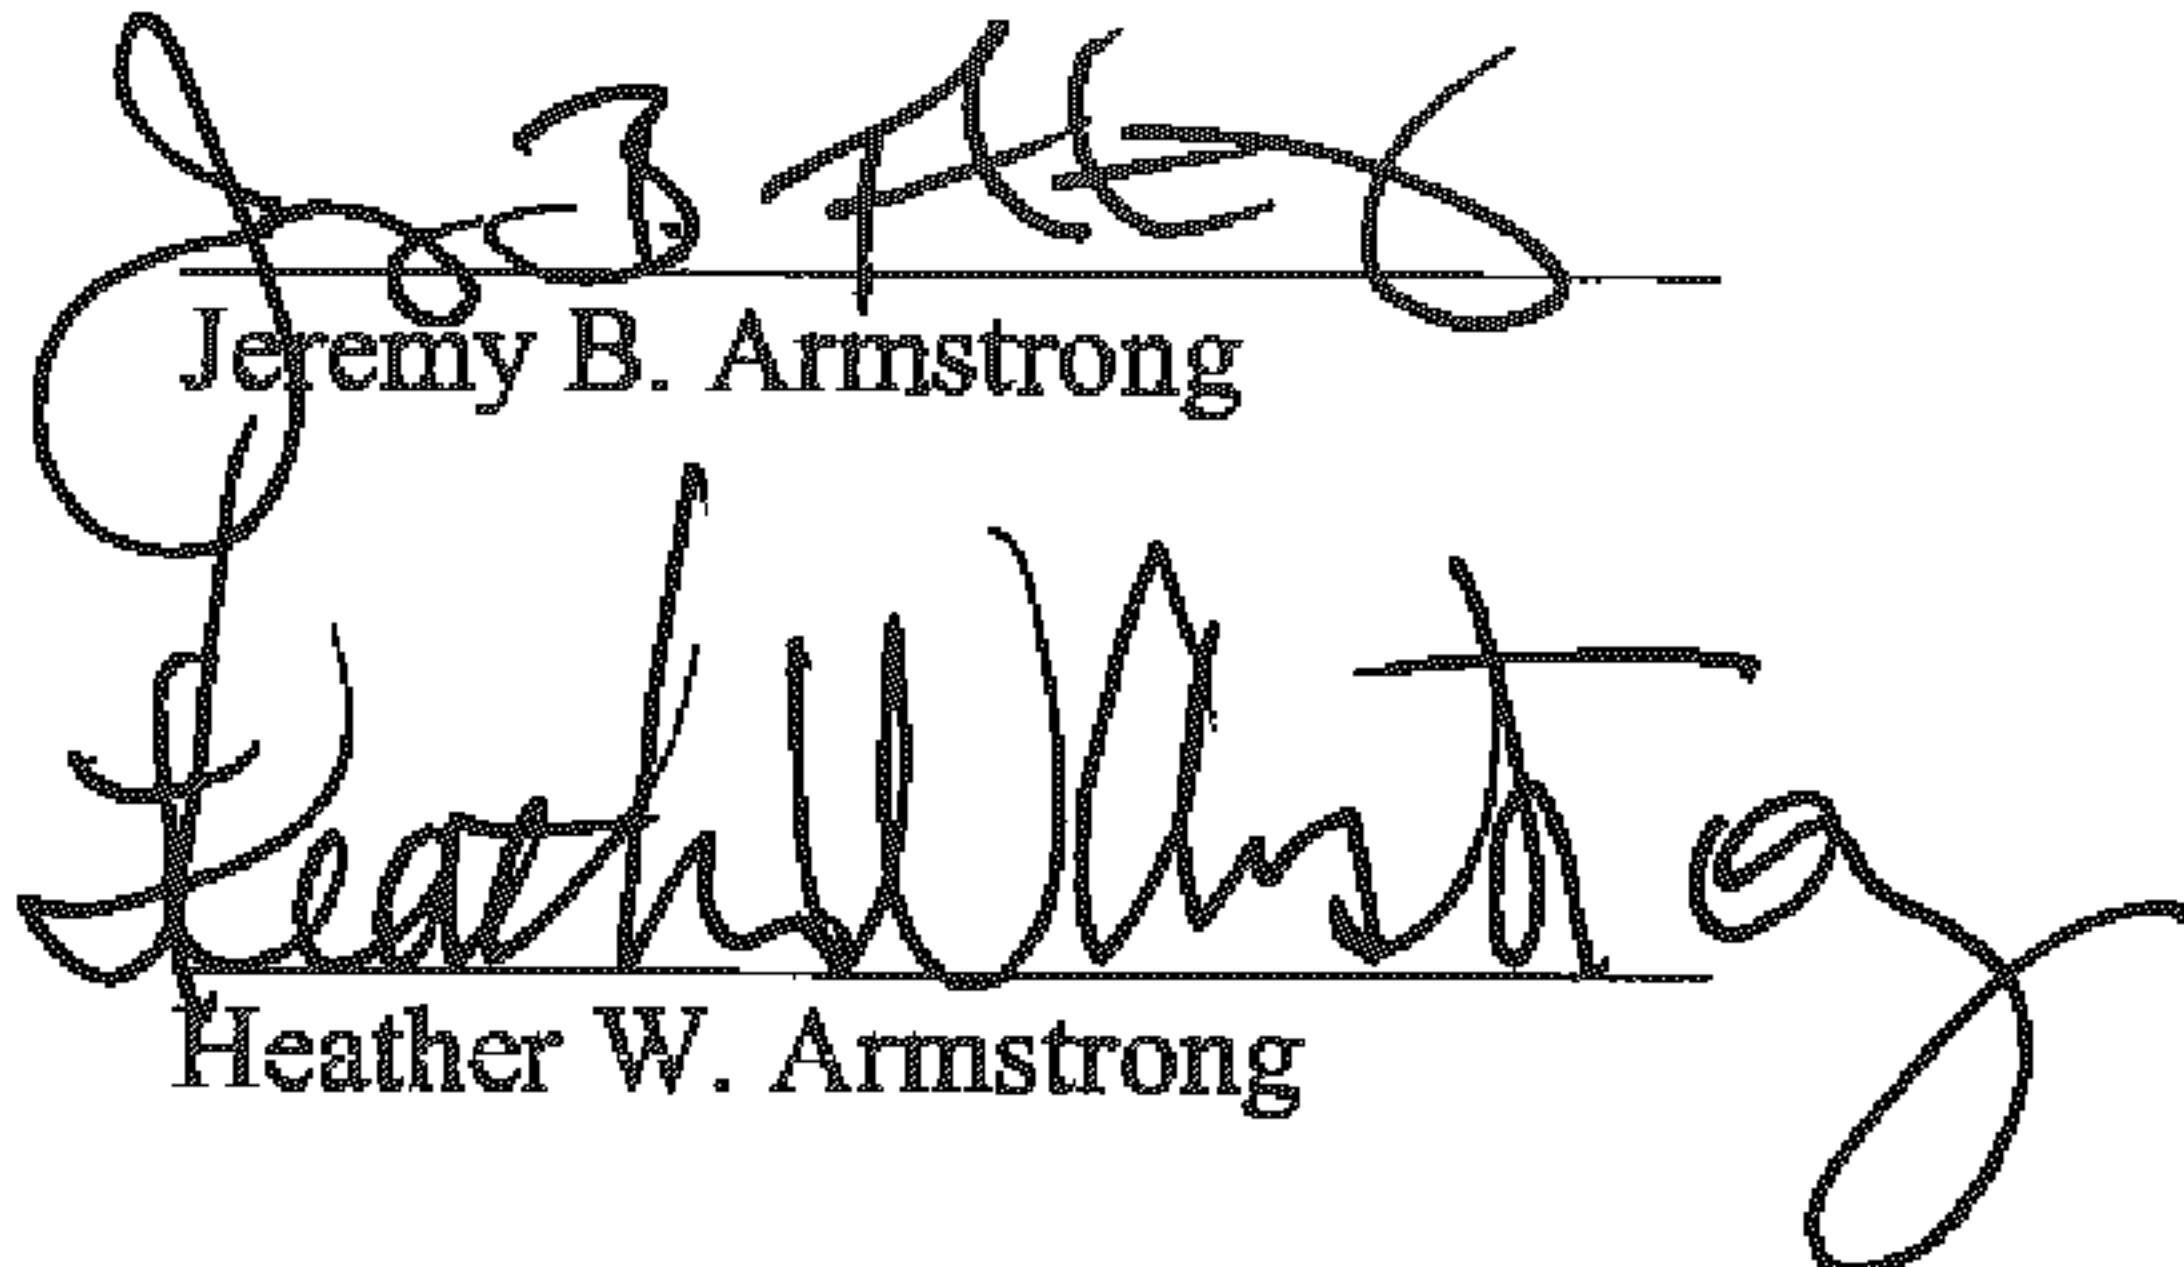 Jeremy B. Armstrong
Heather W. Armstrong